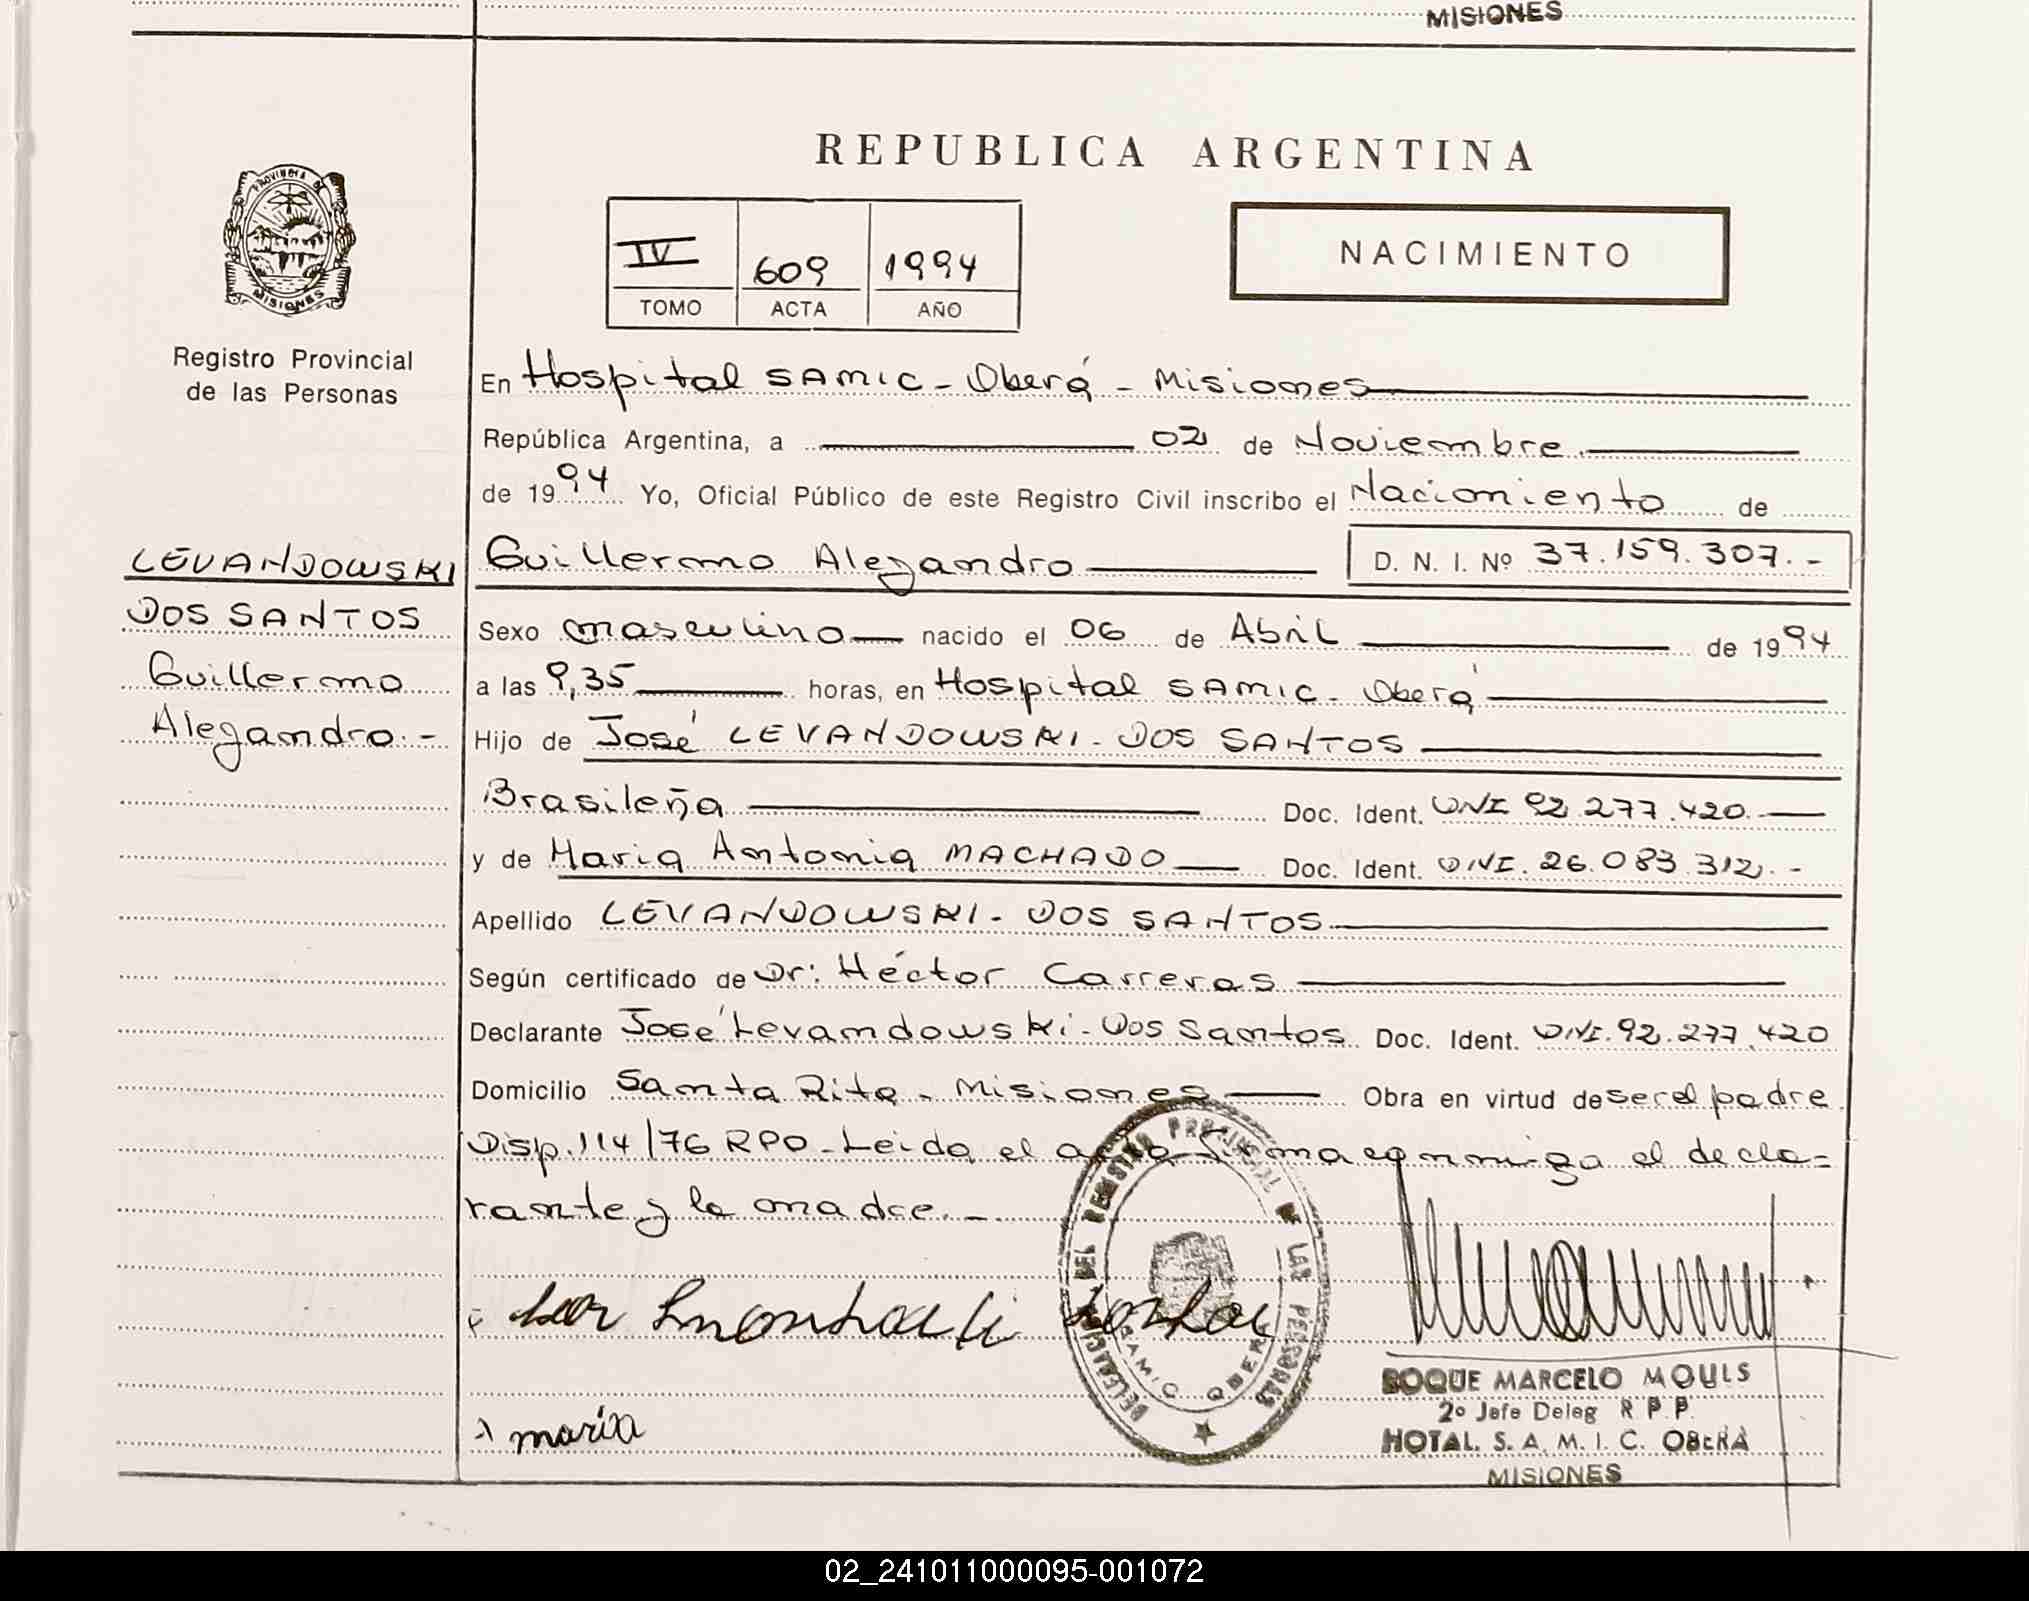 MISIONES
REPUBLICA ARGENTINA
PROVINCIA DE
MISIONES
IV 609 1994
TOMO ACTA AÑO
NACIMIENTO
Registro Provincial
de las Personas
En Hospital SAMIC - Oberá - Misiones
República Argentina, a 02 de Noviembre
de 1994 Yo, Oficial Público de este Registro Civil inscribo el Nacimiento de
LEVANDOWSKI
DOS SANTOS
Guillermo
Alejandro.-
Guillermo Alejandro D. N. I. Nº 37.159.307.-
Sexo masculino nacido el 06 de Abril de 1994
a las 9,35 horas, en Hospital SAMIC - Oberá
Hijo de José LEVANDOWSKI - DOS SANTOS
Brasileña Doc. Ident. DNI 92.277.420.
y de Maria Antonia MACHADO Doc. Ident. DNI. 26.083.312.-
Apellido LEVANDOWSKI - DOS SANTOS
Según certificado de Dr: Héctor Carreras
Declarante José Levandowski - Dos Santos Doc. Ident. DNI. 92.277.420
Domicilio Santa Rita - Misiones Obra en virtud de ser el padre
Disp. 114/76 RPO - Leida el acta firma conmigo el decla=
rante y la madre.-
DELEGACION DEL REGISTRO PROVINCIAL DE LAS PERSONAS
SAMIC OBERA
maria
ROQUE MARCELO MOULS
2º Jefe Deleg R.P.P.
HOTAL. S. A. M. I. C. OBERÁ
MISIONES
02_241011000095-001072